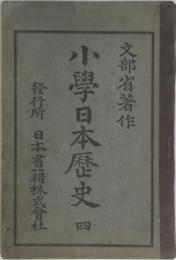 文部省著作
小學日本歷史 四
發行所 日本書籍株式會社